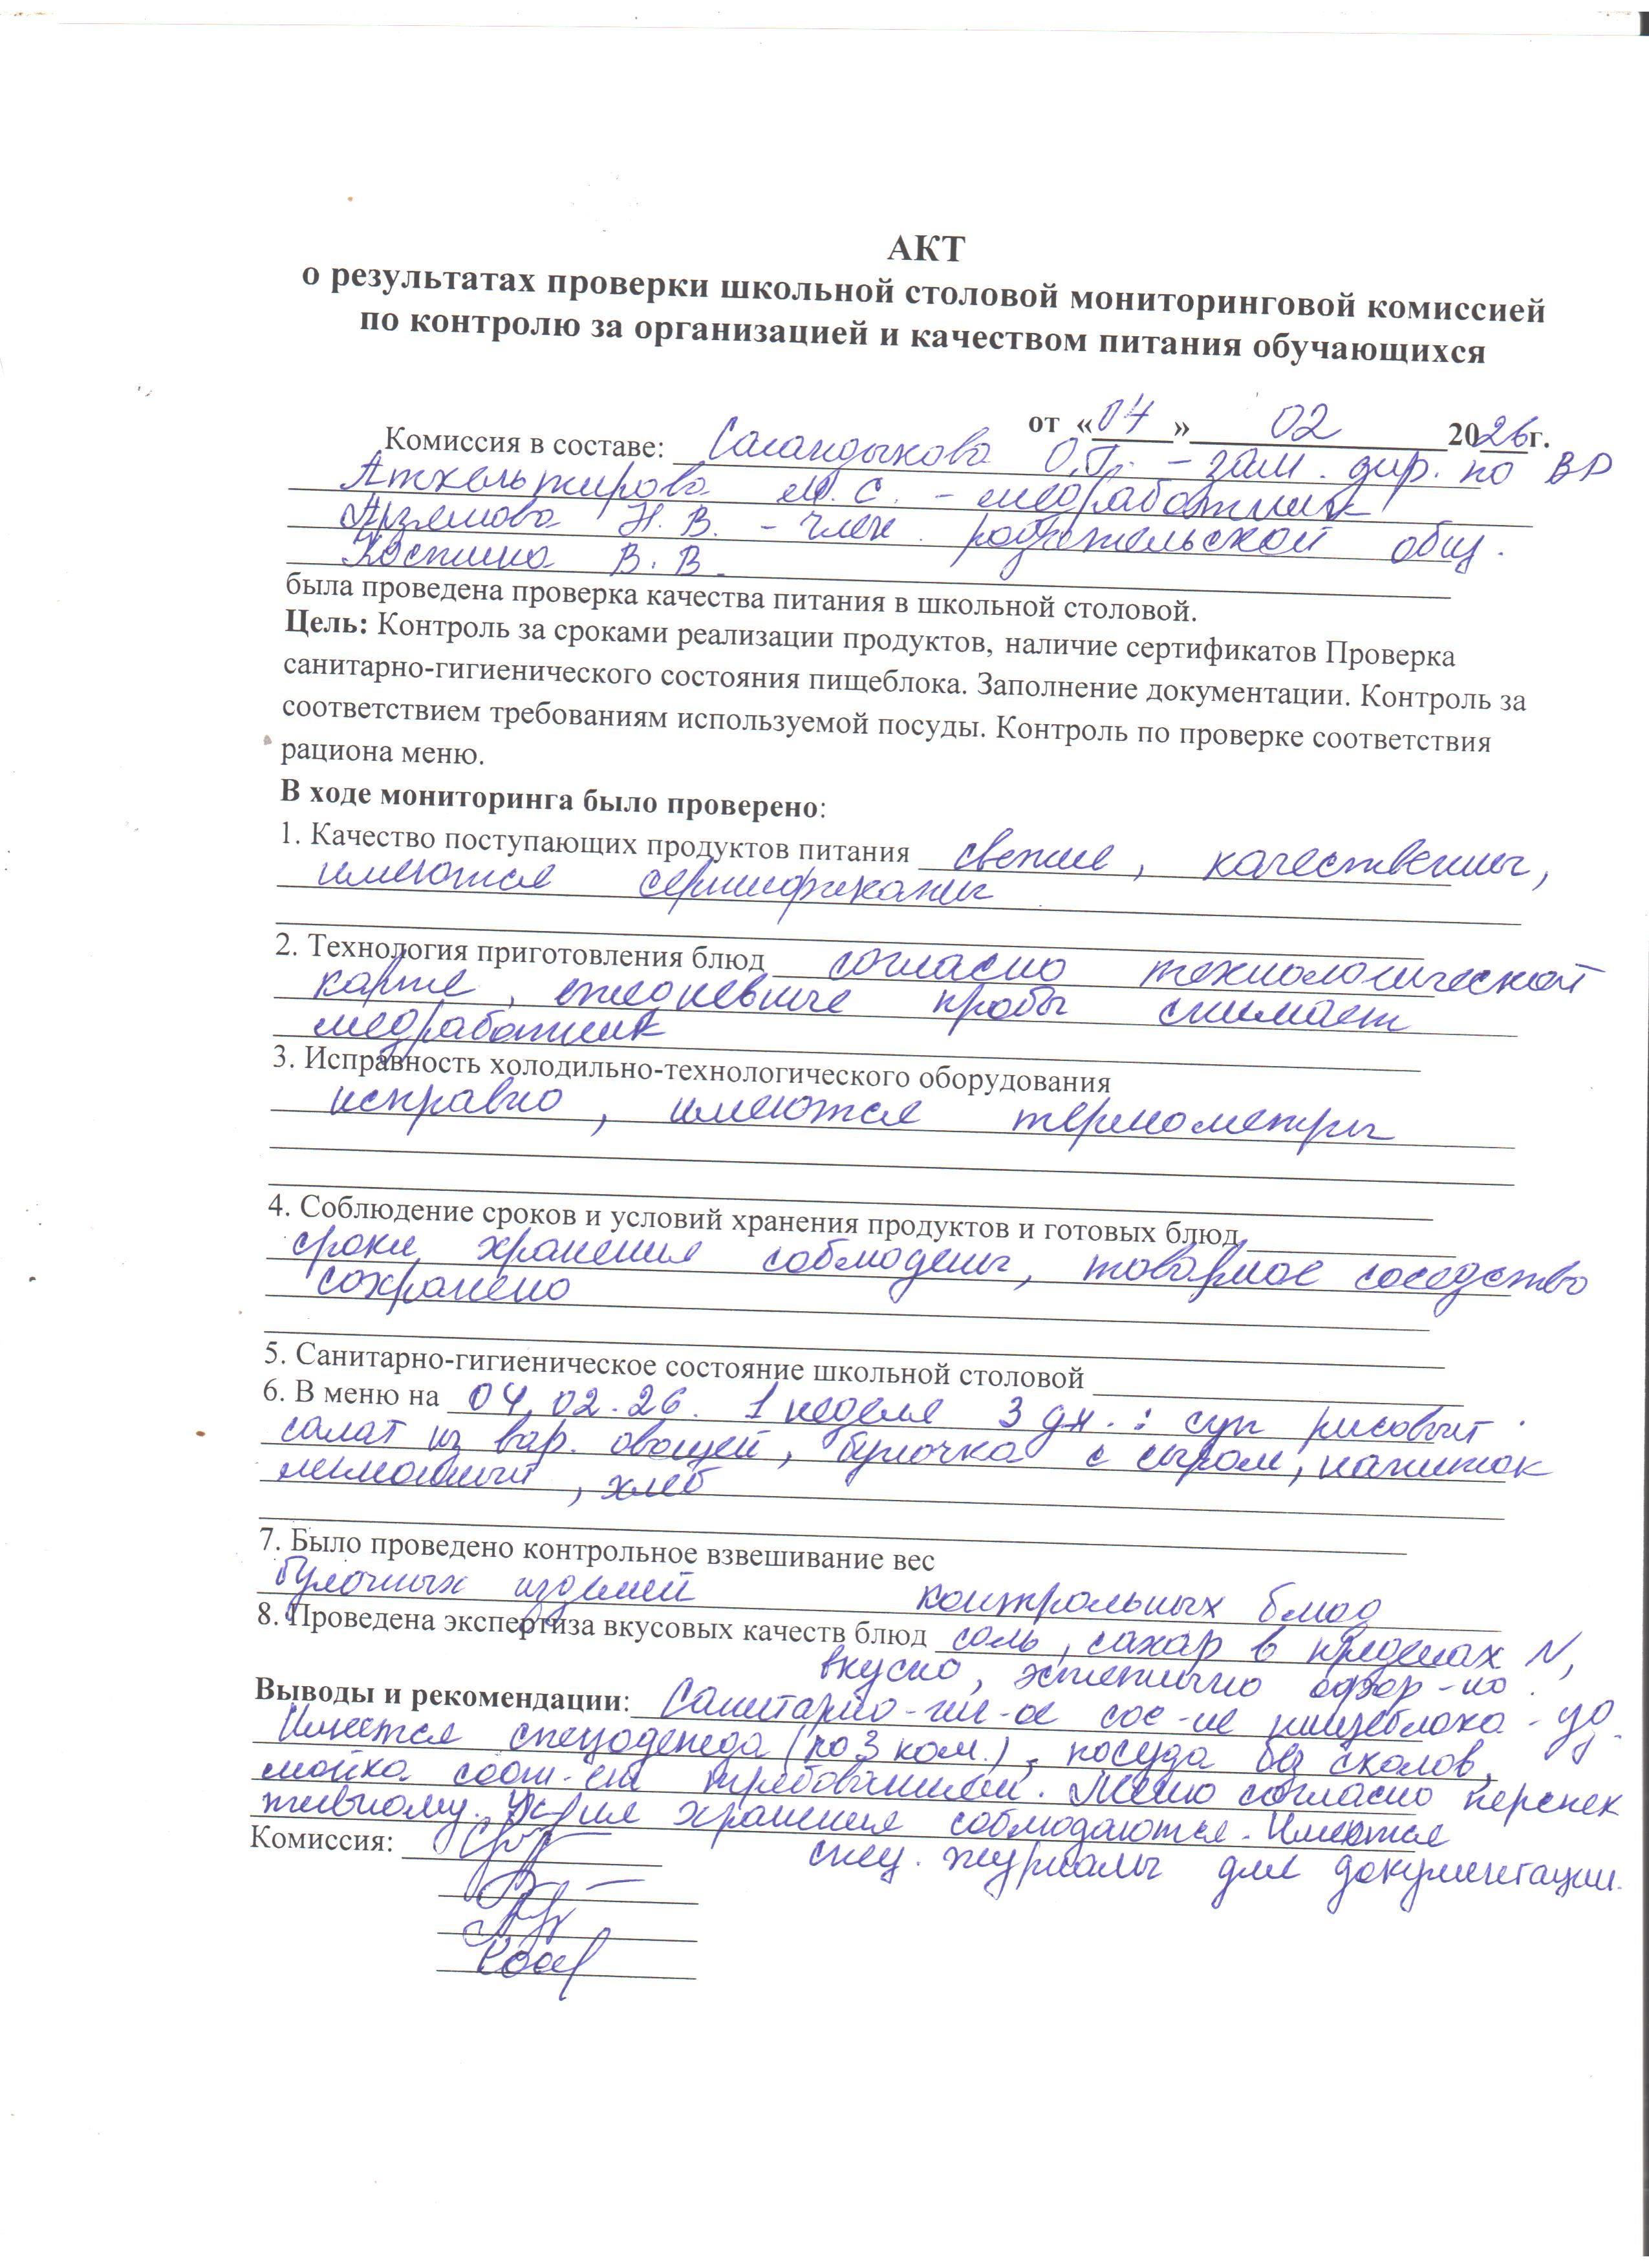 АКТ
о результатах проверки школьной столовой мониторинговой комиссией
по контролю за организацией и качеством питания обучающихся
от «04» 02 2026г.
Комиссия в составе: О.П. – зам. дир. по ВР
М.С. – медработник
Арземова Н.В. – член родительской общ.
Костина В.В.
была проведена проверка качества питания в школьной столовой.
Цель: Контроль за сроками реализации продуктов, наличие сертификатов Проверка
санитарно-гигиенического состояния пищеблока. Заполнение документации. Контроль за
соответствием требованиям используемой посуды. Контроль по проверке соответствия
рациона меню.
В ходе мониторинга было проверено:
1. Качество поступающих продуктов питания свежие, качественны,
имеются сертификаты
2. Технология приготовления блюд согласно технологической
карте, ежедневные пробы снимает
медработник
3. Исправность холодильно-технологического оборудования
исправно, имеются термометры
4. Соблюдение сроков и условий хранения продуктов и готовых блюд
сроки хранения соблюдены, товарное соседство
сохранено
5. Санитарно-гигиеническое состояние школьной столовой
6. В меню на 04.02.26. 1 неделя 3 дн.: суп рисовый
салат из вар. овощей, булочка с сыром, напиток
лимонный, хлеб
7. Было проведено контрольное взвешивание вес
булочных изделий контрольных блюд
8. Проведена экспертиза вкусовых качеств блюд соль, сахар в пределах N,
вкусно, эстетично
Выводы и рекомендации: Санитарно-гиг-ое сос-ие пищеблока - уд.
Имеется спецодежда (по 3 ком.), посуда без сколов,
мойка соот-ет требованиям. Меню согласно перспек
тивному. Условия хранения соблюдаются. Имеются
Комиссия:
спец. журналы для документации.